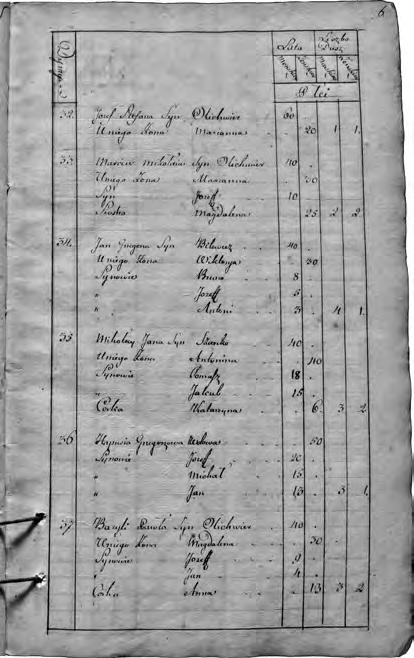 6
Lata Liczba Dusz
Płci
32. Józef Stefana Syn Olichwier 60
U niego Żona Marianna 20 1 1
33. Marcin Mikołaia Syn Olichwier 40
U niego Żona Maryanna 30
Syn Jozeff 10
Siostra Magdalena 25 2 2
34. Jan Grzegorza Syn 40
U niego Żona Wiktorya 30
Synowie 8
" Jozeff 5
" Antoni 3 4 1
35 Mikołay Jana Syn 40
U niego Żona Antonina 40
Synowie Tomasz 18
" Jakub 15
Córka Katarzyna 6 3 2
36 Grzegorzowa Wdowa 50
Synowie Jozeff 20
" Michał 15
" Jan 13 3 1
37 Bazyli Pawła Syn Olichwier 40
U niego Żona Magdalena 30
Synowie Jozeff 9
" Jan 4
Córka Anna 13 3 2